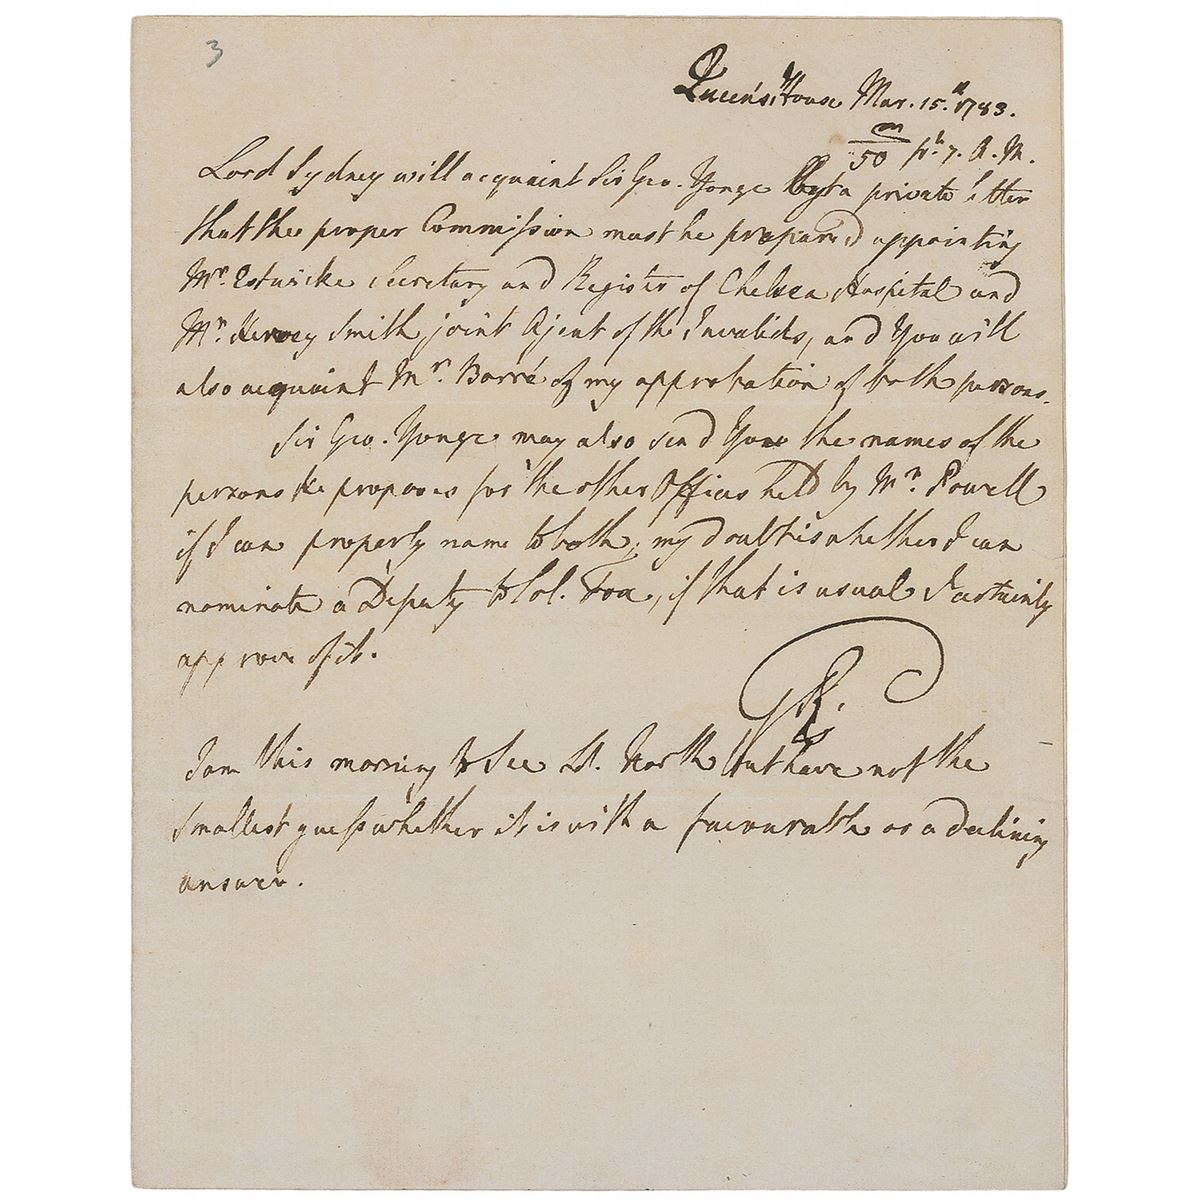 3
Queen's House Mar. 15th 1783.
m
50 pt. 7. A.M.
Lord Sydney will acquaint Sir Geo. Yonge by a private letter
that the proper Commission must be prepared appointing
Mr. Estwicke Secretary and Register of Chelsea Hospital and
Mr. Hervey Smith joint Agent of the Invalids, and You will
also acquaint Mr. Barré of my approbation of both persons.
Sir Geo. Yonge may also send You the names of the
persons He proposes for the other Offices held by Mr. Powell
if I can properly name to both; my doubt is whether I can
nominate a Deputy to Col. Fox, if that is usual I certainly
approve of it.
GR.
I am this morning to See Ld. North but have not the
smallest guess whether it is with a favourable or a declining
answer.